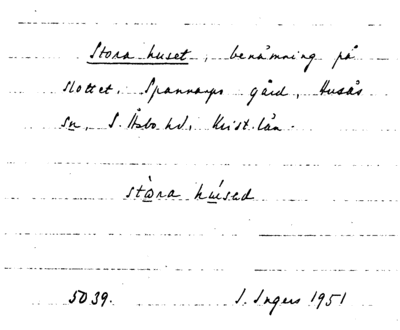 Stora huset, benämning på
slottet, Spannarps gård, Ausås
sn, S. Åsbo hd, Krist. län.
stòra húsed
5039. I. Ingers 1951